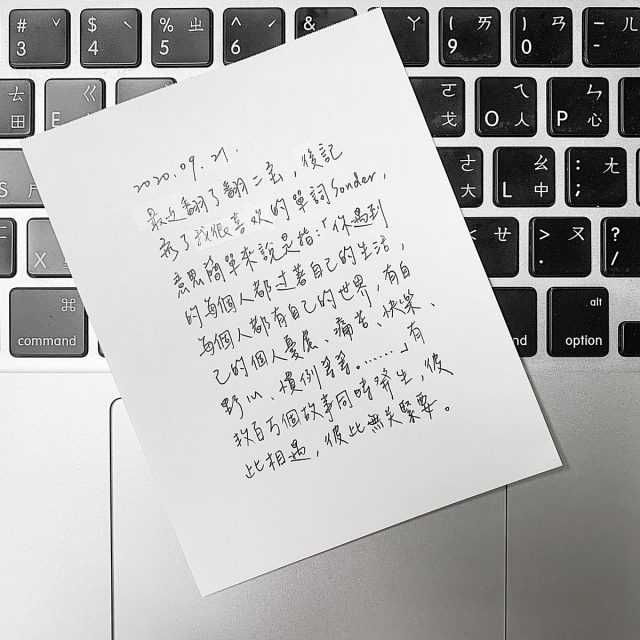 # 3 ˇ $ 4 ˋ % 5 ㄓ ^ 6 ˊ & ㄚ ( 9 ㄞ ) 0 ㄢ - ㄦ
田 ㄊ E ㄍ ㄛ 戈 O ㄟ 人 P ㄣ 心
S ㄋ L ㄠ 中 : ; ㄤ
X ㄌ > . ㄡ ? / ㄥ
⌘ command alt option
2020.09.21.
最近翻了翻二玄，後記
寫了我很喜欢的單詞 Sonder，
意思簡單來說是指：「你遇到
的每個人都过着自己的生活，
每個人都有自己的世界，有自
己的個人憂慮、痛苦、快樂、
野心、慣例等等。……」有
数百万個故事同時發生，彼
此相遇，彼此無关緊要。